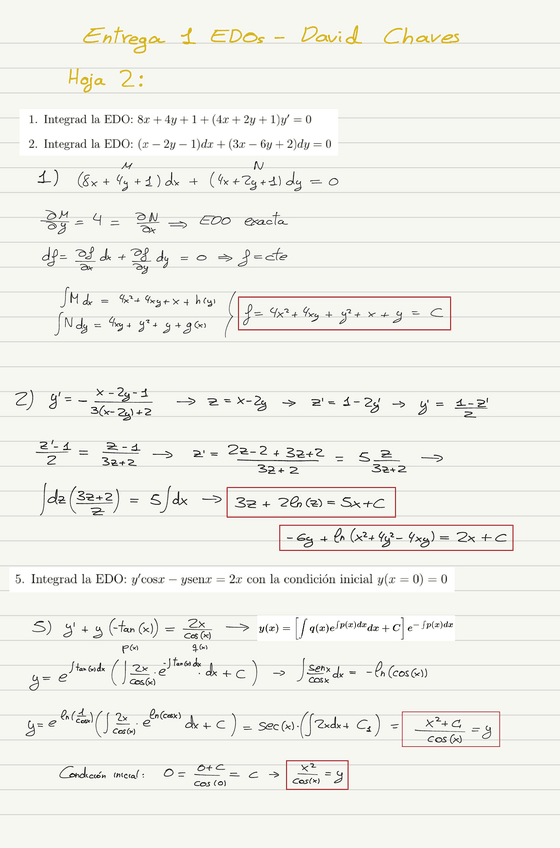 Entrega 1 EDOs - David Chaves
Hoja 2:
1. Integrad la EDO: 8x + 4y + 1 + (4x + 2y + 1)y' = 0
2. Integrad la EDO: (x − 2y − 1)dx + (3x − 6y + 2)dy = 0
M N
1) (8x + 4y + 1) dx + (4x + 2y + 1) dy = 0
∂M/∂y = 4 = ∂N/∂x ⇒ EDO exacta
df = ∂f/∂x dx + ∂f/∂y dy = 0 ⇒ f = cte
∫M dx = 4x² + 4xy + x + h(y)
∫N dy = 4xy + y² + y + g(x)
f = 4x² + 4xy + y² + x + y = C
2) y' = - (x - 2y - 1)/(3(x - 2y) + 2) → z = x - 2y → z' = 1 - 2y' → y' = (1 - z')/2
(z' - 1)/2 = (z - 1)/(3z + 2) → z' = (2z - 2 + 3z + 2)/(3z + 2) = 5 z/(3z + 2) →
∫dz ((3z + 2)/z) = 5∫dx → 3z + 2ln(z) = 5x + C
- 6y + ln(x² + 4y² - 4xy) = 2x + C
5. Integrad la EDO: y'cosx − ysenx = 2x con la condición inicial y(x = 0) = 0
5) y' + y (-tan(x)) = 2x/cos(x) → y(x) = [∫ q(x)e^{∫p(x)dx} dx + C] e^{−∫p(x)dx}
p(x) q(x)
y = e^{∫tan(x)dx} (∫ 2x/cos(x) · e^{-∫tan(x)dx} · dx + C) → ∫ senx/cosx dx = -ln(cos(x))
y = e^{ln(1/cosx)} (∫ 2x/cos(x) · e^{ln(cosx)} dx + C) = sec(x) · (∫2xdx + C₁) = (x² + C₁)/cos(x) = y
Condición inicial: 0 = (0 + C)/cos(0) = C → x²/cos(x) = y